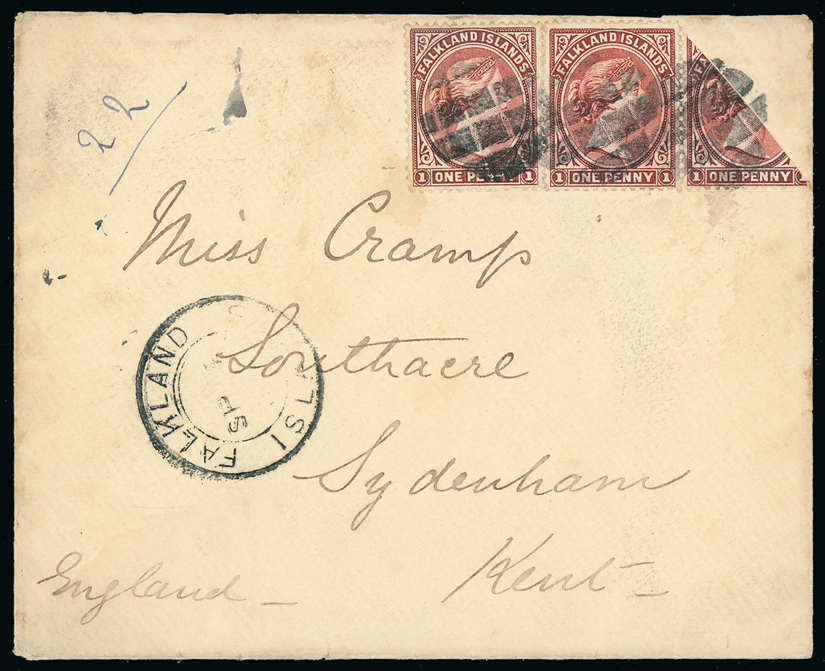 22
FALKLAND ISLANDS
1 ONE PENNY 1
FALKLAND ISLANDS
1 ONE PENNY 1
1 ONE PENNY
Miss Cramp
Southacre
Sydenham
Kent
England
FALKLAND ISL
SP